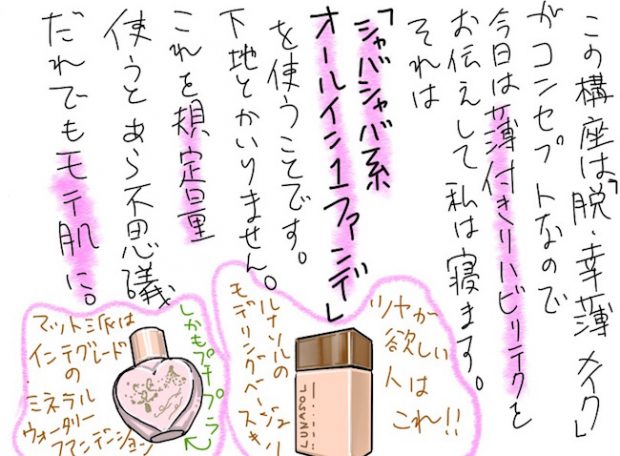 この講座は「脱・幸薄メイク」
がコンセプトなので
今日は薄付きリハビリテクを
お伝えして私は寝ます。
それは
「シャバシャバ系
オールイン1ファンデ」
を使うことです。
下地とかいりません。
これを規定量
使うとあら不思議
だれでもモテ肌に。
ツヤが
欲しい
人は
これ!!
LUNASOL
ルナソルの
モデリングベージュ
しかもプチプラ
マット派は
インテグレード
の
ミネラル
ウォータリー
ファンデーション